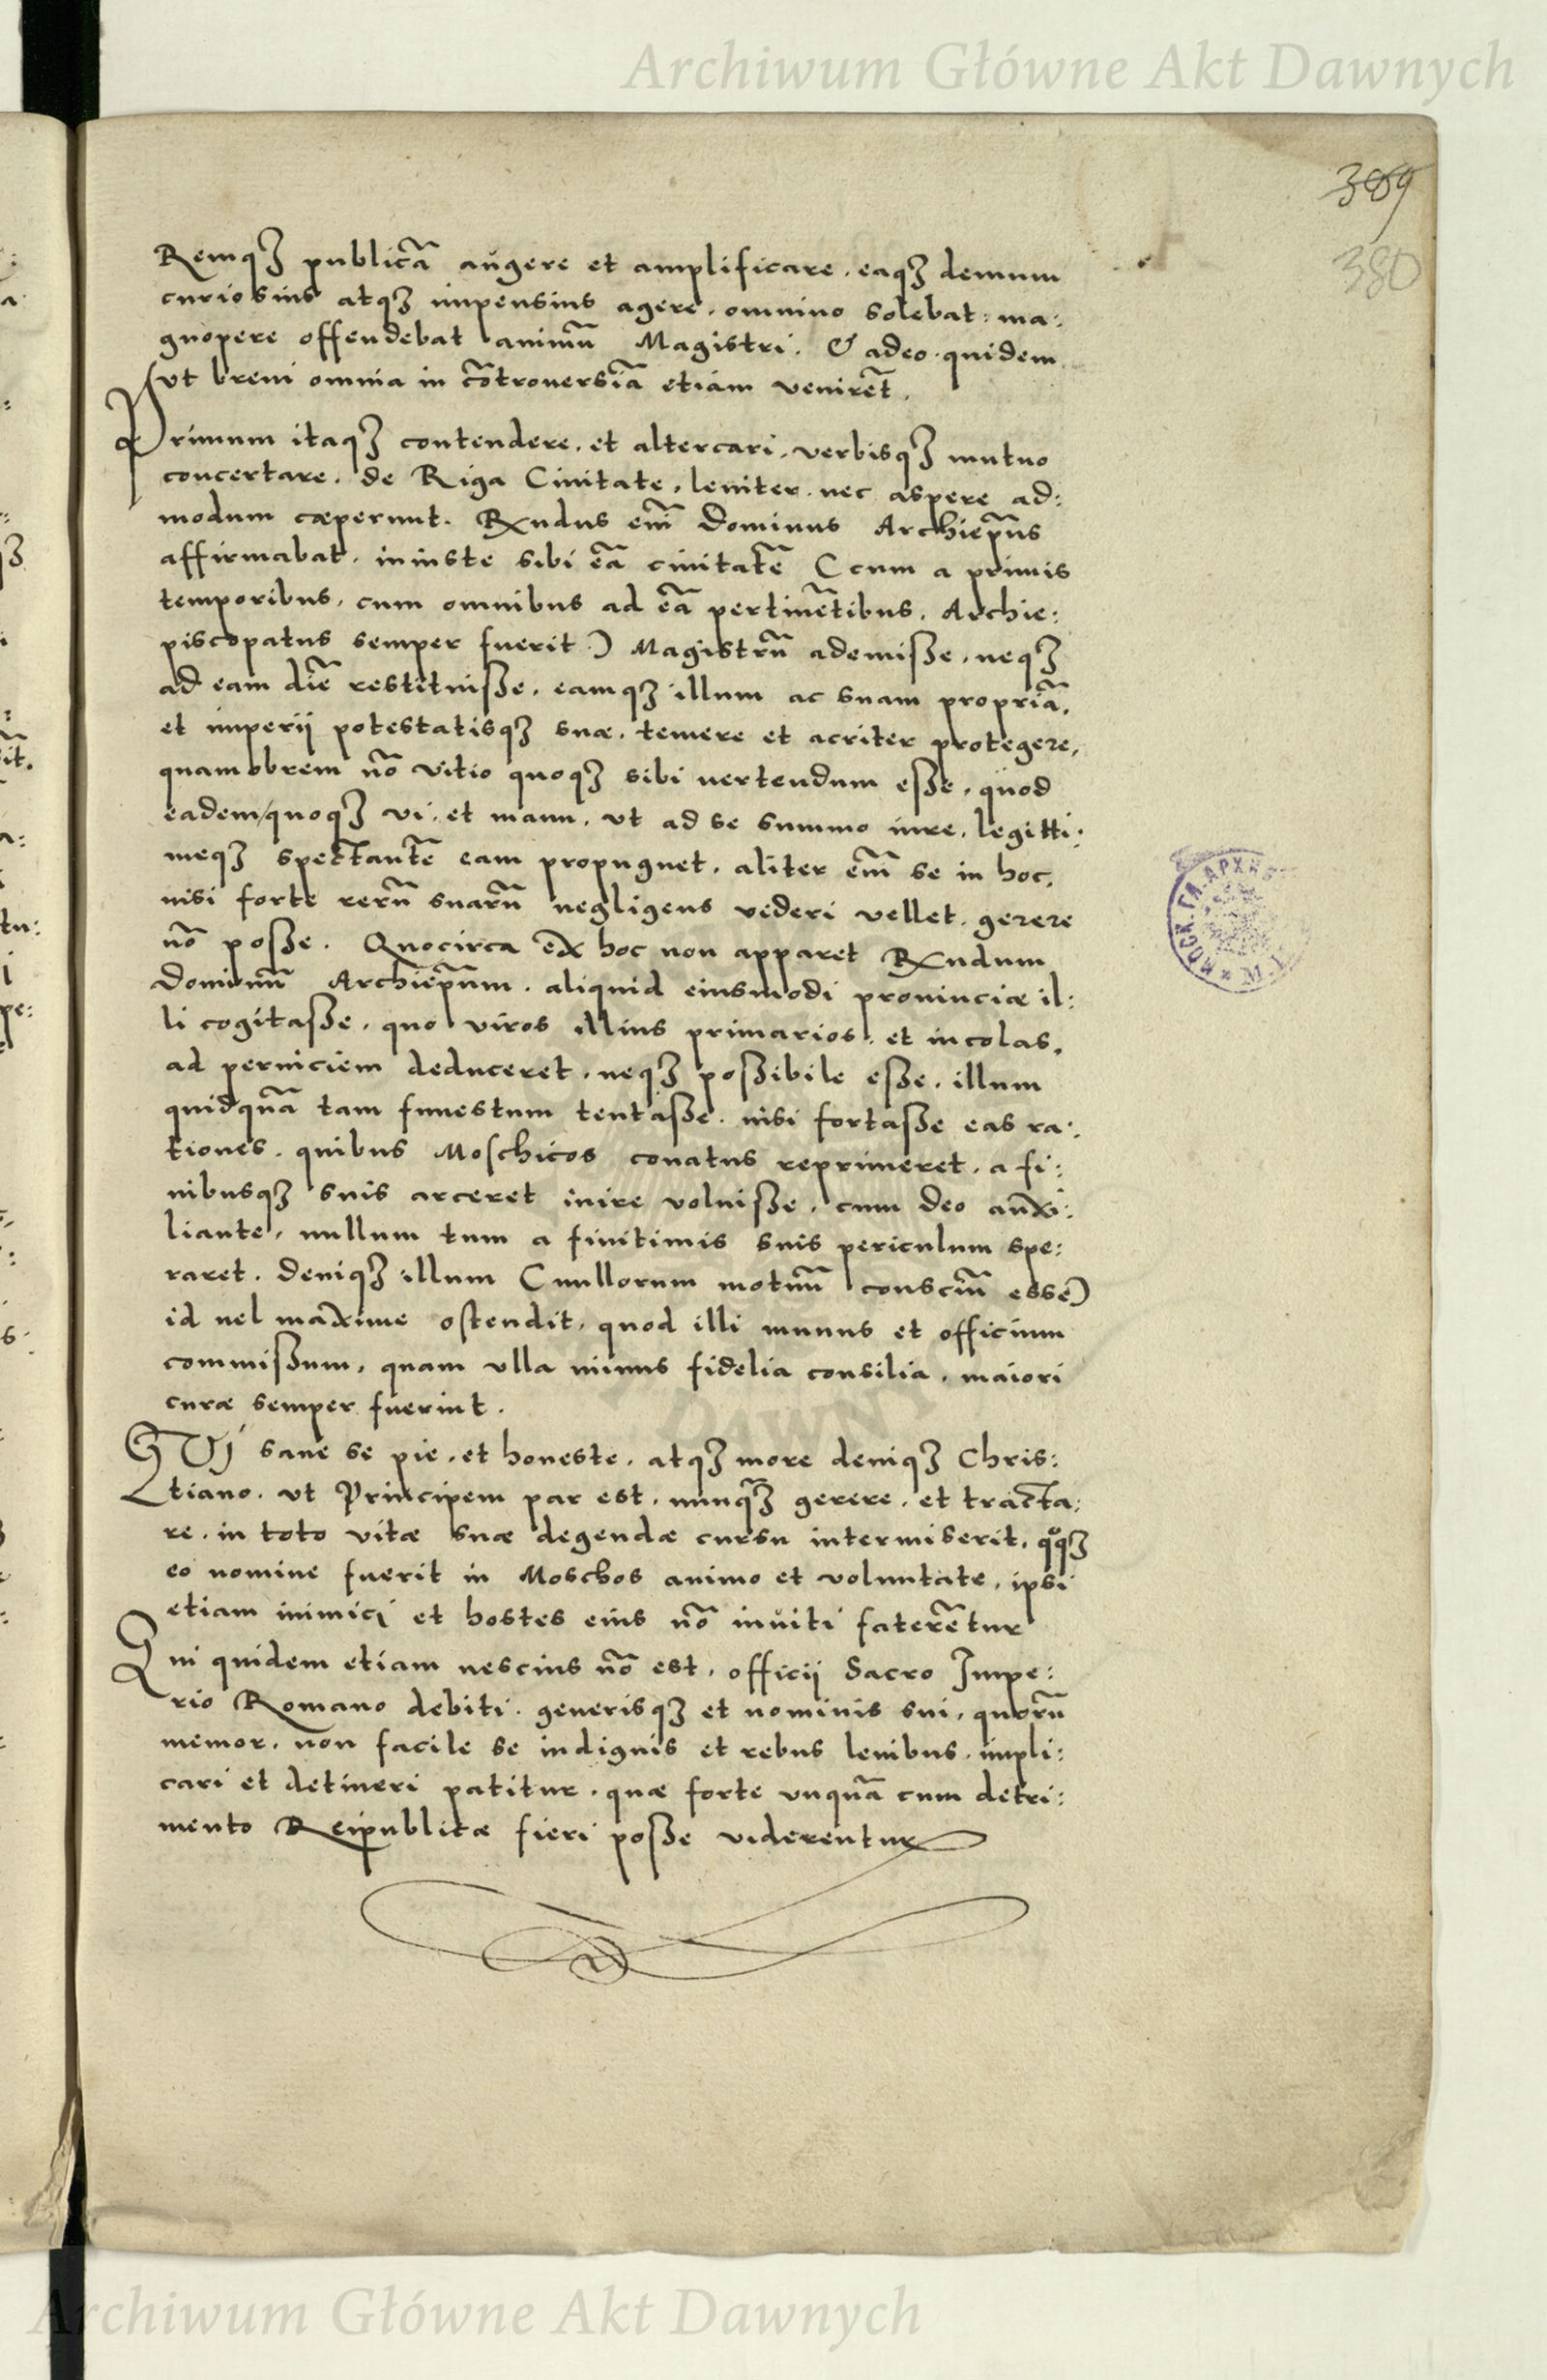 Archiwum Główne Akt Dawnych
389
380
Remqꝫ publicā augere et amplificare, eaqꝫ demum
curiosius atqꝫ impensius agere, omnino solebat: ma:
gnopere offendebat animū Magistri. & adeo quidem
ut breui omnia in cōtrouersiā etiam venirēt.
Primum itaqꝫ contendere, et altercari, verbisqꝫ mutuo
concertare, de Riga Ciuitate, leuiter, nec aspere ad:
modum cæperunt. Rxndus em̄ Dominus Archiep̄us
affirmabat, iniuste sibi eā ciuitatē (cum a primis
temporibus, cum omnibus ad eā pertinētibus, Archie:
piscopatus semper fuerit) Magistrū ademiſse, neqꝫ
ad eam diē restituiſse, eamqꝫ illum ac suam propriā,
et imperij potestatisqꝫ suæ, temere et acriter protegere,
quamobrem nō vitio quoqꝫ sibi uertendum eſse, quod
eadem quoqꝫ vi, et manu, ut ad se summo iure, legitti:
meqꝫ spectantē eam propugnet, aliter em̄ se in hoc,
nisi forte rerū suarū negligens uideri vellet, gerere
nō poſse. Quocirca ex hoc non apparet Rxndum
Dominū Archiep̄um, aliquid eiusmodi prouinciæ il:
li cogitaſse, quo viros illius primarios, et incolas,
ad perniciem deduceret, neqꝫ poſsibile eſse, illum
quidquā tam funestum tentaſse, nisi fortaſse eas ra:
tiones, quibus Moschicos conatus reprimeret, a fi:
nibusqꝫ suis arceret inire voluiſse, cum Deo auxi:
liante, nullum tum a finitimis suis periculum spe:
raret. Deniqꝫ illum (nullorum motuū consciū esse)
id uel maxime ostendit, quod illi munus et officium
commiſsum, quam ulla minus fidelia consilia, maiori
curæ semper fuerint.
QVi sane se pie, et honeste, atqꝫ more deniqꝫ Chris:
tiano, ut Principem par est, nunqꝫ gerere, et tracta:
re, in toto vitæ suæ degendæ cursu intermiserit, qͦqꝫ
eo nomine fuerit in Moschos animo et voluntate, ipsi
etiam inimici et hostes eius nō inuiti faterētur
Qui quidem etiam nescius nō est, officij Sacro Impe:
rio Romano debiti, generisqꝫ et nominis sui, quorū
memor, non facile se indignis et rebus leuibus, impli:
cari et detineri patitur, quæ forte unquā cum detri:
mento Reipublicæ fieri poſse viderentur
МОСК. ГЛ. АРХИВ
Archiwum Główne Akt Dawnych